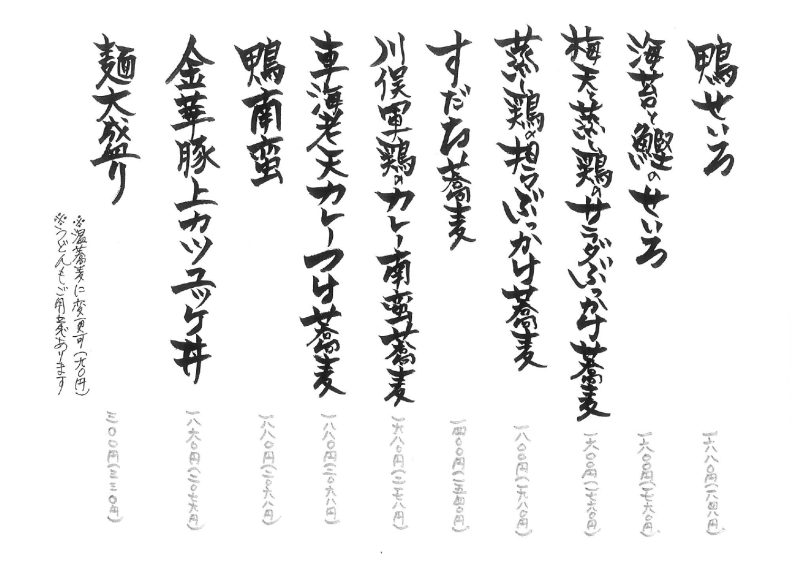 鴨せいろ 一六八〇円(一八四八円)
海苔と鰹のせいろ 一六〇〇円(一七六〇円)
梅天と蒸し鶏のサラダぶっかけ蕎麦 一六〇〇円(一七六〇円)
蒸し鶏の担々ぶっかけ蕎麦 一八〇〇円(一九八〇円)
すだち蕎麦 一四〇〇円(一五四〇円)
川俣軍鶏のカレー南蛮蕎麦 一九八〇円(二一七八円)
車海老天カレーつけ蕎麦 一八八〇円(二〇六八円)
鴨南蛮 一八八〇円(二〇六八円)
金華豚上カツユッケ丼 一八九〇円(二〇七九円)
麺大盛り 三〇〇円(三三〇円)
※温蕎麦に変更可
※うどんもご用意あります